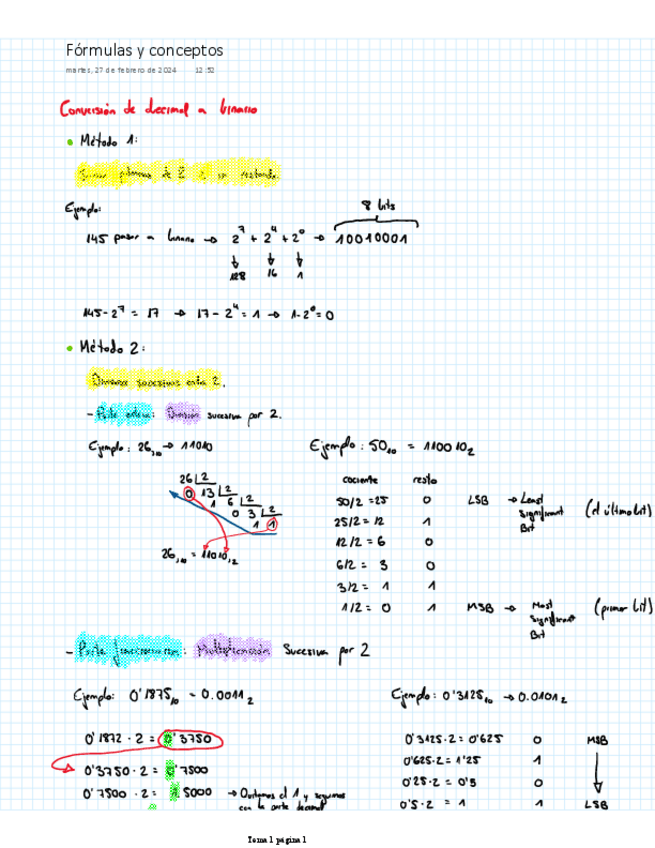 Fórmulas y conceptos
martes, 27 de febrero de 2024 12:52
Conversión de decimal a binario
• Método 1:
Ejemplo:
8 bits
145 pasar a binario → 2^7 + 2^4 + 2^0 → 10010001
128 16 1
145 - 2^7 = 17 → 17 - 2^4 = 1 → 1 - 2^0 = 0
• Método 2:
Divisiones sucesivas entre 2.
- Parte entera: División sucesiva por 2.
Ejemplo: 26,10 → 11010
Ejemplo: 50₁₀ = 110010₂
26 2
0 13 2
1 6 2
0 3 2
1 1
26,10 = 11010,2
cociente resto
50/2 = 25 0 LSB → Least Significant Bit (el último bit)
25/2 = 12 1
12/2 = 6 0
6/2 = 3 0
3/2 = 1 1
1/2 = 0 1 MSB → Most Significant Bit (primer bit)
- Parte fraccionaria: Multiplicación sucesiva por 2
Ejemplo: 0'1875₁₀ = 0.0011₂
Ejemplo: 0'3125₁₀ → 0.0101₂
0'1872 · 2 = 0'3750
0'3750 · 2 = 0'7500
0'7500 · 2 = 1.5000 → Quitamos el 1 y seguimos con la parte decimal
0'3125·2 = 0'625 0 MSB
0'625·2 = 1'25 1
0'25·2 = 0'5 0
0'5·2 = 1 1 LSB
Tema 1 página 1